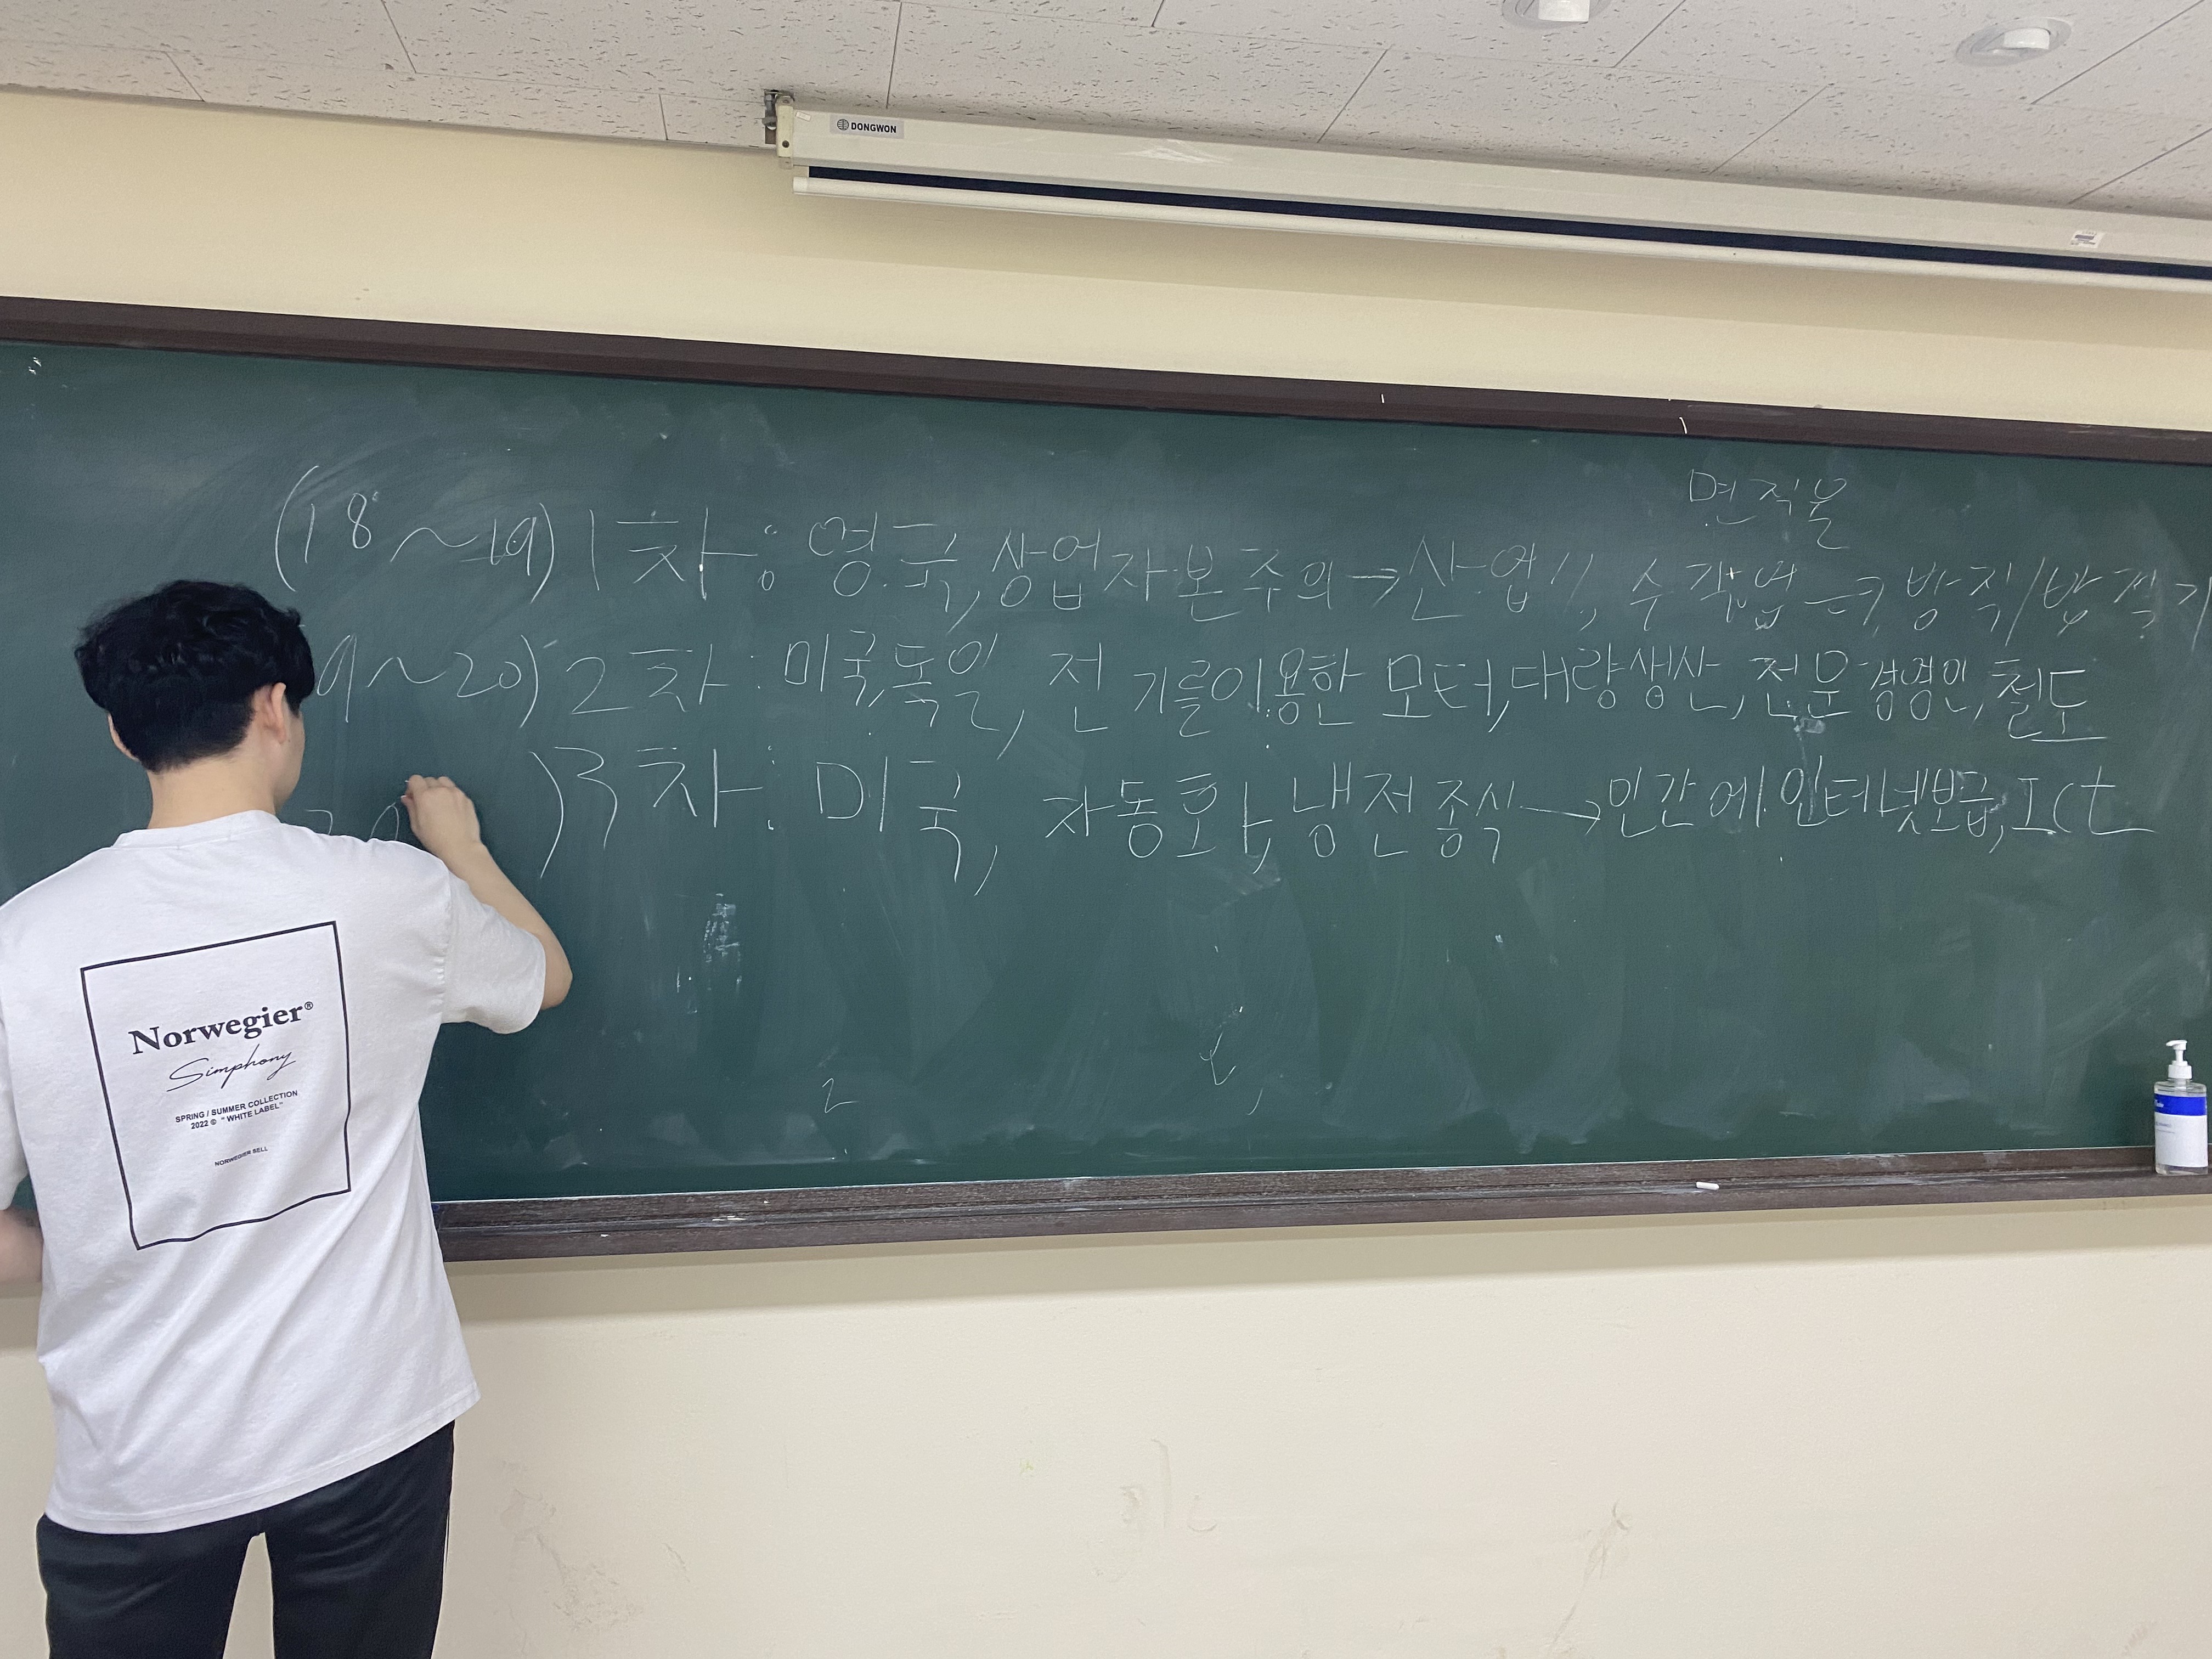 DONGWON
면직물
(18~19) 1차: 영국, 상업자본주의→산업〃, 수작업→, 방직/방적기
9~20) 2차: 미국,독일, 전기를이용한 모터,대량생산, 전문경영인, 철도
20 )3차: 미국, 자동화, 냉전종식→민간에 인터넷보급, Ict
Norwegier®
Simphony
SPRING / SUMMER COLLECTION
2022 © "WHITE LABEL"
NORWEGIER SELL